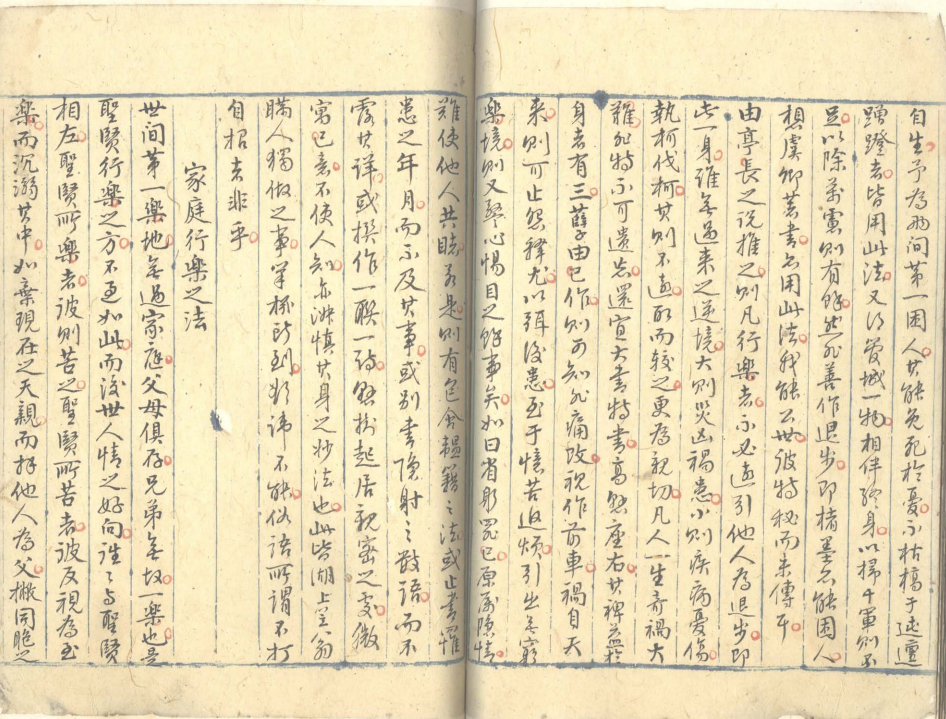 自生。予為兩間第一困人。其能免死於憂。不枯槁于迍邅
蹭蹬者。皆用此法。又得管城一物。相伴終身。以掃千軍則不
足。以除萬慮則有餘。然非善作退步。即楮墨亦能困人。
想虞卿著書。亦用此法。我能公世。彼特秘而未傳耳。
由亭長之說推之。則凡行樂者。不必遠引他人為退步。即
此一身。誰無過來之逆境。大則災凶禍患。小則疾病憂傷。
執柯伐柯。其則不遠。取而較之。更為親切。凡人一生奇禍大
難。非特不可遺忘。還宜大書特書。高懸座右。其裨益於
身者有三。孽由己作。則可知非痛改。視作前車。禍自天
来。則可止怨釋尤。以弭後患。至于憶苦追煩。引出無窮
樂境。則又警心惕目之餘事矣。如曰省躬罪己。原屬隱情。
難使他人共睹。若是則有包含韞籍之法。或止書罹
患之年月。而不及其事。或別書隱射之數語。而不
露其詳。或撰作一聯一詩。懸掛起居親密之處。微
寓己意。不使人知。亦淑慎其身之妙法也。此皆湖上笠翁
瞞人獨做之事。筆機所到。欲諱不能。俗語所謂不打
自招者非乎。
家庭行樂之法
世間第一樂地。無過家庭。父母俱存。兄弟無故。一樂也。是
聖賢行樂之方。不過如此。而後世人情之好向。往往与聖賢
相左。聖賢所樂者。彼則苦之。聖賢所苦者。彼反視為至
樂。而沉溺其中。如棄現在之天親。而拜他人為父。撇同胞之